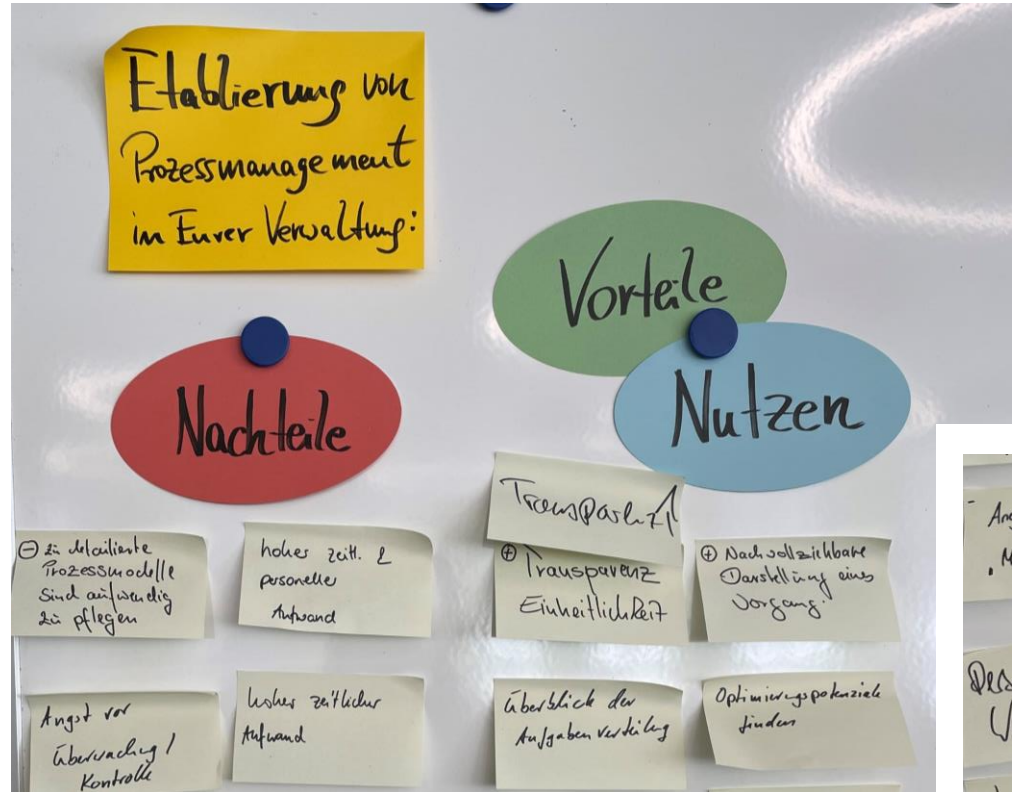 Etablierung von
Prozessmanagement
in Eurer Verwaltung:
Vorteile
Nutzen
Nachteile
⊖ zu detailierte
Prozessmodelle
sind aufwendig
zu pflegen
hoher zeitl. &
personeller
Aufwand
Transparenz↑
⊕ Transparenz
Einheitlichkeit
⊕ Nachvollziehbare
Darstellung eines
Vorgang.
Angst vor
Überwachung /
Kontrolle
hoher zeitlicher
Aufwand
Überblick der
Aufgabenverteilung
Optimierungspotenziale
finden